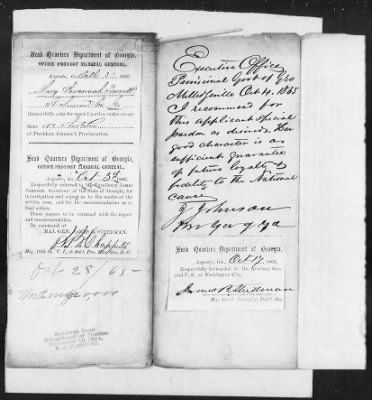 Head Quarters Department of Georgia,
OFFICE PROVOST MARSHAL GENERAL,
Augusta, Ga., 1865.
Mary Savannah
of Co. Ga
Respectfully asks for special pardon under excep-
tion
of President Johnson's Proclamation.
Head Quarters Department of Georgia,
OFFICE PROVOST MARSHAL GENERAL,
Augusta, Ga., Oct 3d 1865.
Respectfully referred to His Excellency James
Johnson, Governor of the State of Georgia, for
investigation and report as to the merits of the
within case, and for his recommendation as to
final action.
These papers to be returned with the report
and recommendation.
By command of
MAJ. GEN. JAMES B. STEEDMAN.
Oct 28/65
Worth
Executive Office
Provisional Govt of Geo
Milledgeville Oct 4. 1865
I recommend for
this applicant special
pardon as desired. Her
good character is a
sufficient guarantee
of future loyalty &
fidelity to the National
cause
J Johnson
Prov Gov of Ga
Head Quarters Department of Georgia,
Augusta, Ga., Oct 17 1865.
Respectfully forwarded to the Attorney Gen-
eral U. S., at Washington City.
James B. Steedman
Maj. Genl. Comd'g. Dept. Ga.